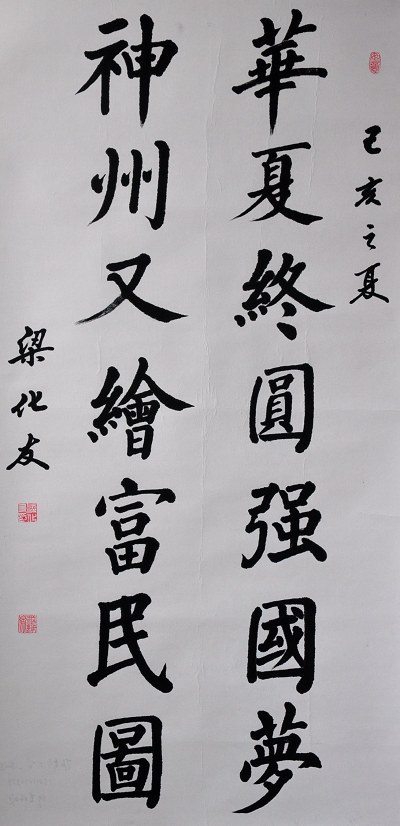 己亥之夏
華夏終圓强國夢
神州又繪富民圖
梁化友